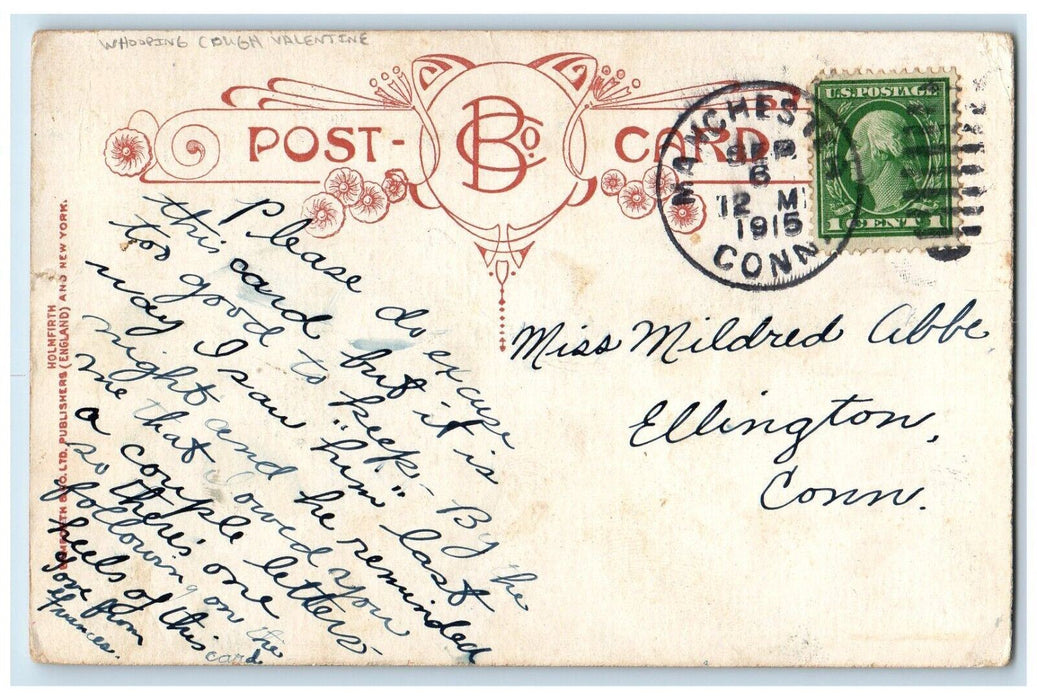 WHOOPING COUGH VALENTINE
POST-
B Co.
CARD
MANCHESTER
SEP
6
12 M
1915
CONN.
U.S. POSTAGE
1 CENT 1
HOLMFIRTH
BAMFORTH & CO. LTD. PUBLISHERS (ENGLAND) AND NEW YORK.
Please do excuse
this card but it is
too good to keep - By the
way I saw "him" last
night and he reminded
me that I owed you
a couple letters
so there's one
following on the
heels of this
card
Love from
Frances.
Miss Mildred Abbe
Ellington,
Conn.